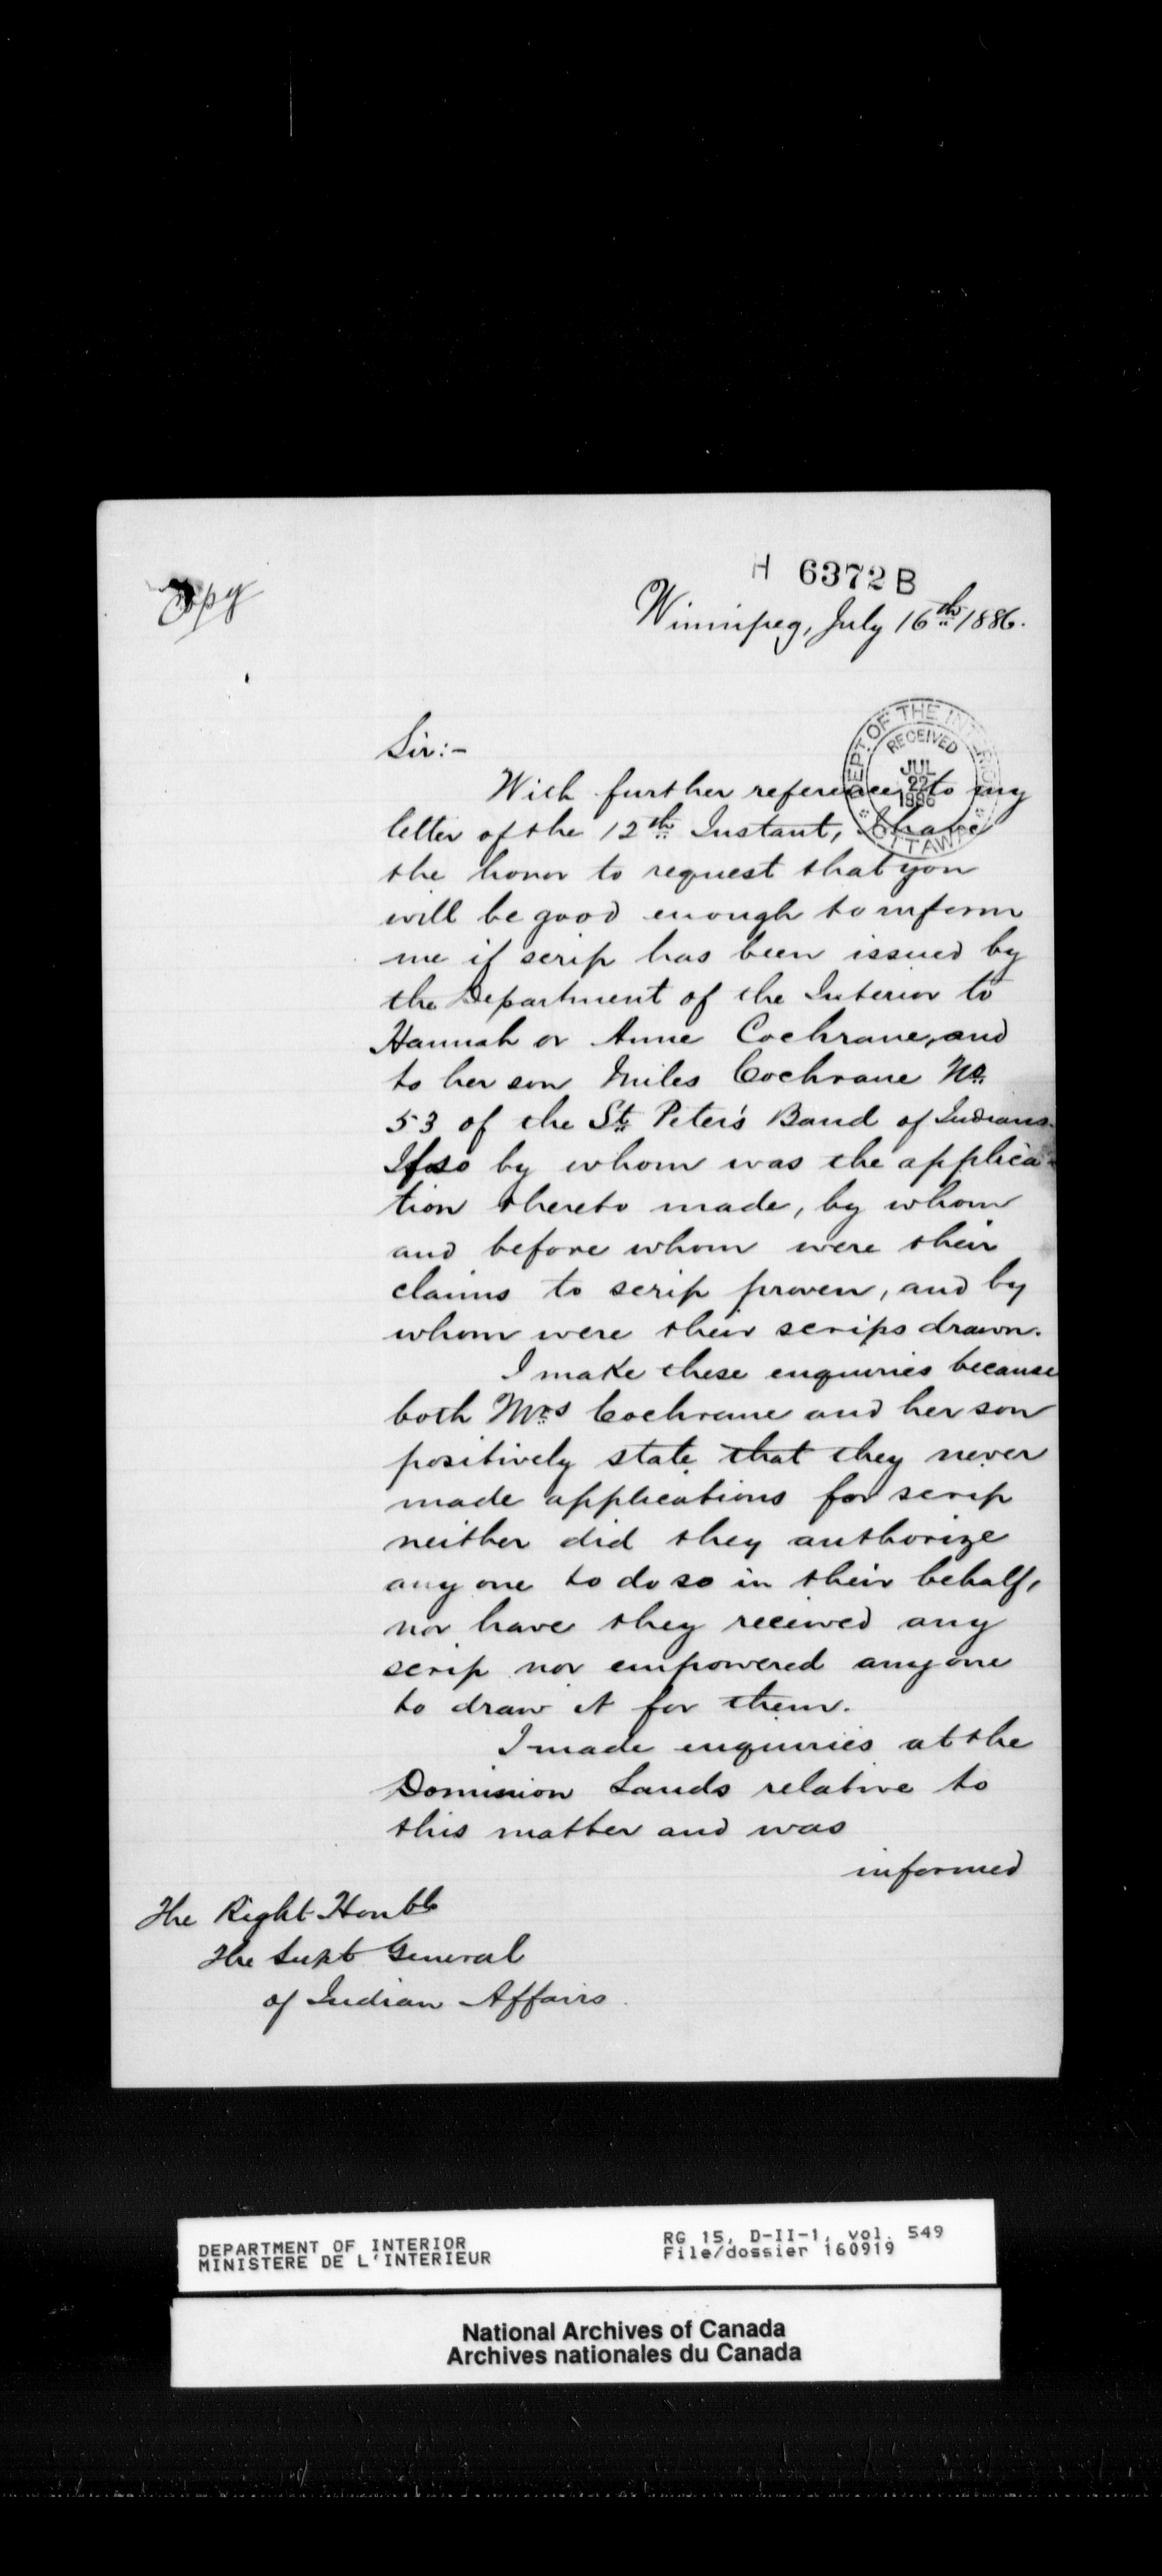 Copy
H 6372 B
Winnipeg, July 16th 1886.
DEPT. OF THE INTERIOR
RECEIVED
JUL
22
1886
OTTAWA
Sir:-
With further reference to my
letter of the 12th Instant, I have
the honor to request that you
will be good enough to inform
me if scrip has been issued by
the Department of the Interior to
Hannah or Anne Cochrane, and
to her son Miles Cochrane No.
53 of the St. Peter's Band of Indians.
If so by whom was the applica-
tion thereto made, by whom
and before whom were their
claims to scrip proven, and by
whom were their scrips drawn.
I make these enquiries because
both Mrs Cochrane and her son
positively state that they never
made applications for scrip
neither did they authorize
any one to do so in their behalf,
nor have they received any
scrip nor empowered any one
to draw it for them.
I made enquiries at the
Dominion Lands relative to
this matter and was
informed
The Right Honble
The Supt General
of Indian Affairs.
DEPARTMENT OF INTERIOR
MINISTERE DE L'INTERIEUR
RG 15, D-II-1, vol. 549
File/dossier 160919
National Archives of Canada
Archives nationales du Canada